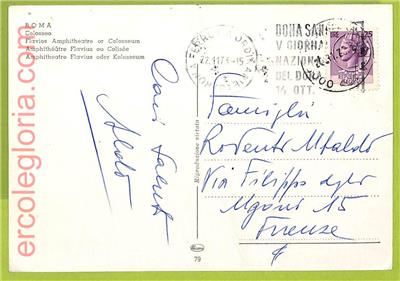 ROMA
Colosseo
Flavius Amphitheatre or Colosseum
Amphithéâtre Flavius ou Colisée
Amphitheatre Flavius oder Kolosseum
Cari Saluti
Aldo
Riproduzione vietata
79
ROMA FERROVIA
22.11.73-15
DONA SANGUE
V GIORNATA
NAZIONALE
DEL DONATORE
14 OTT.
25
Famiglia
Via Filippo degli
Ugoni 15
Firenze
ercolegloria.com